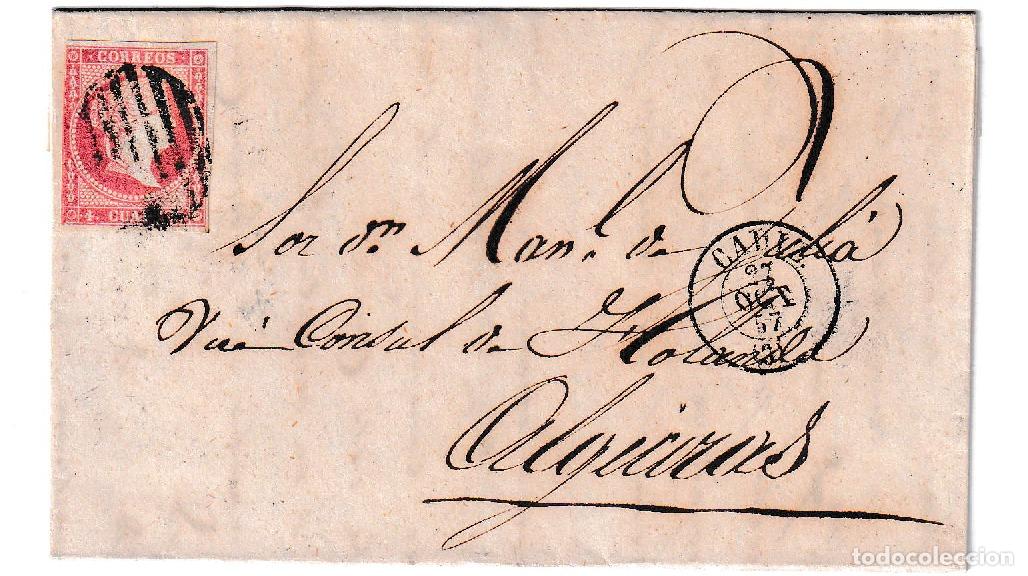 CORREOS
4 CU
Sor dn Manl. de Juliá
Vice Consul de Holanda
Algeciras
27
OCT
57
todocoleccion